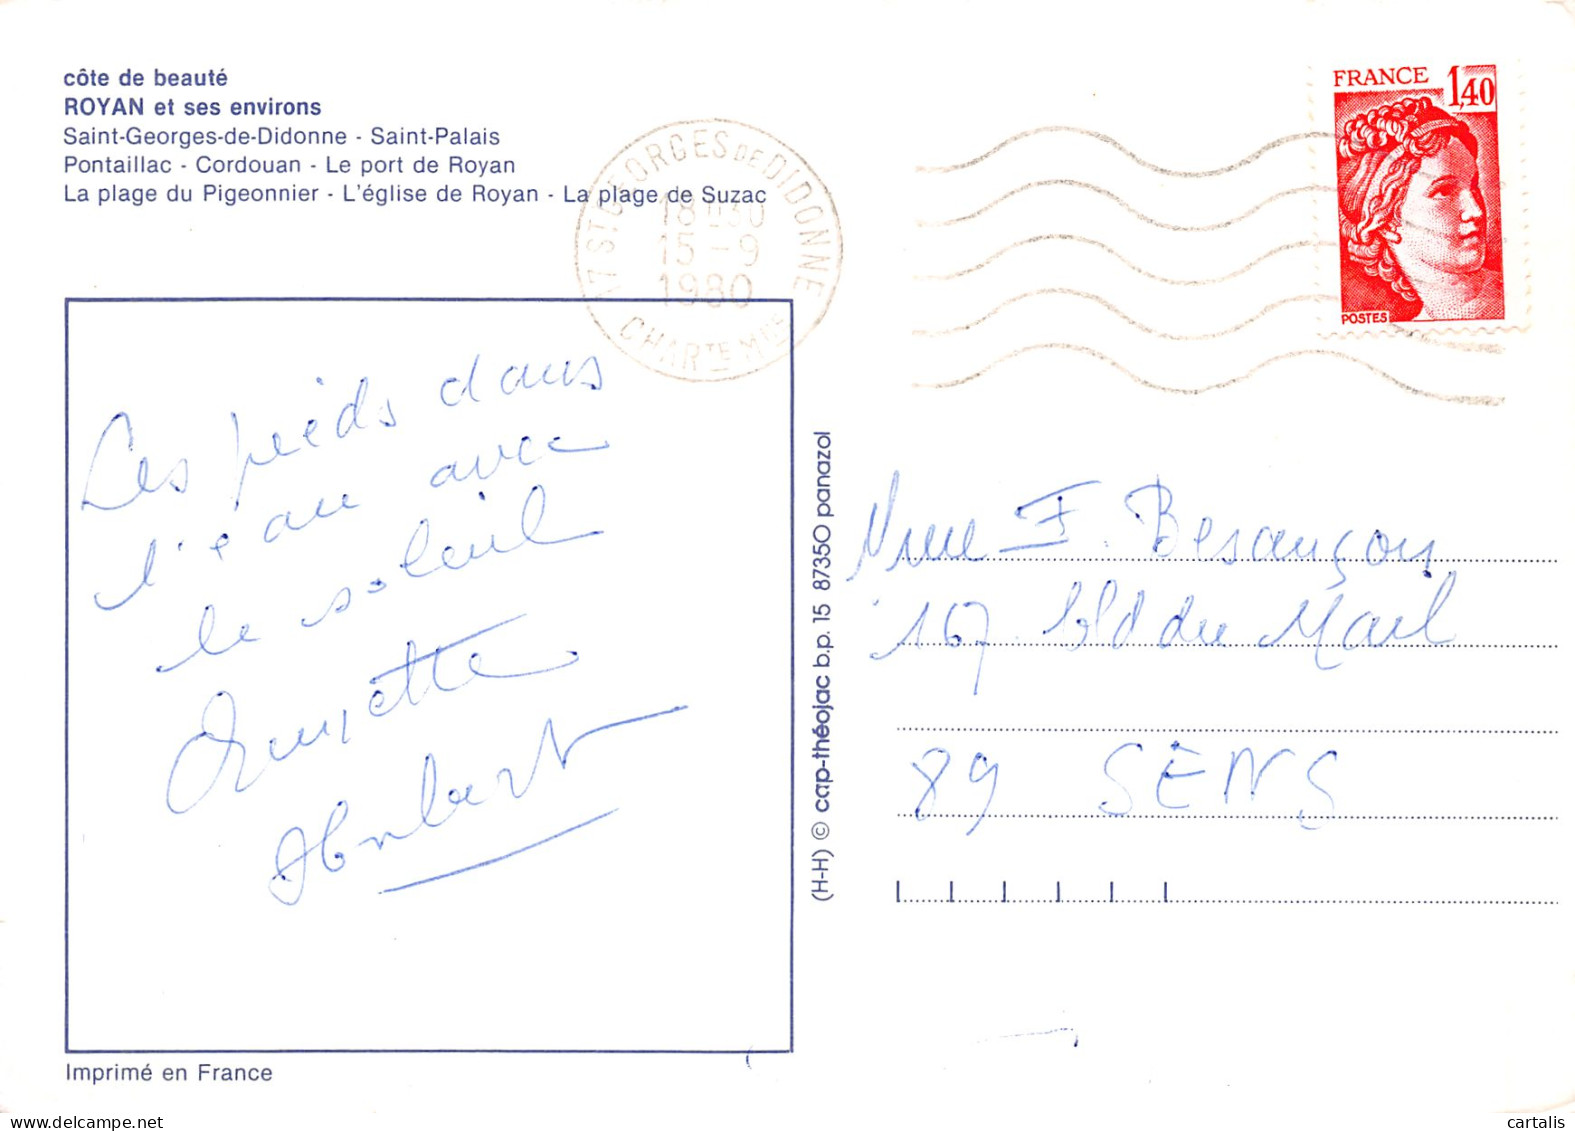 côte de beauté
ROYAN et ses environs
Saint-Georges-de-Didonne - Saint-Palais
Pontaillac - Cordouan - Le port de Royan
La plage du Pigeonnier - L'église de Royan - La plage de Suzac
17 ST GEORGES DE DIDONNE
18H30
15-9
1980
CHARTE MME
FRANCE 1,40
POSTES
Les pieds dans
l'eau avec
le soleil
Hubert
(H-H) © cap-théojac b.p. 15 87350 panazol
Mme F. Besançon
167 bld du Mail
89 SENS
Imprimé en France
www.delcampe.net
cartalis